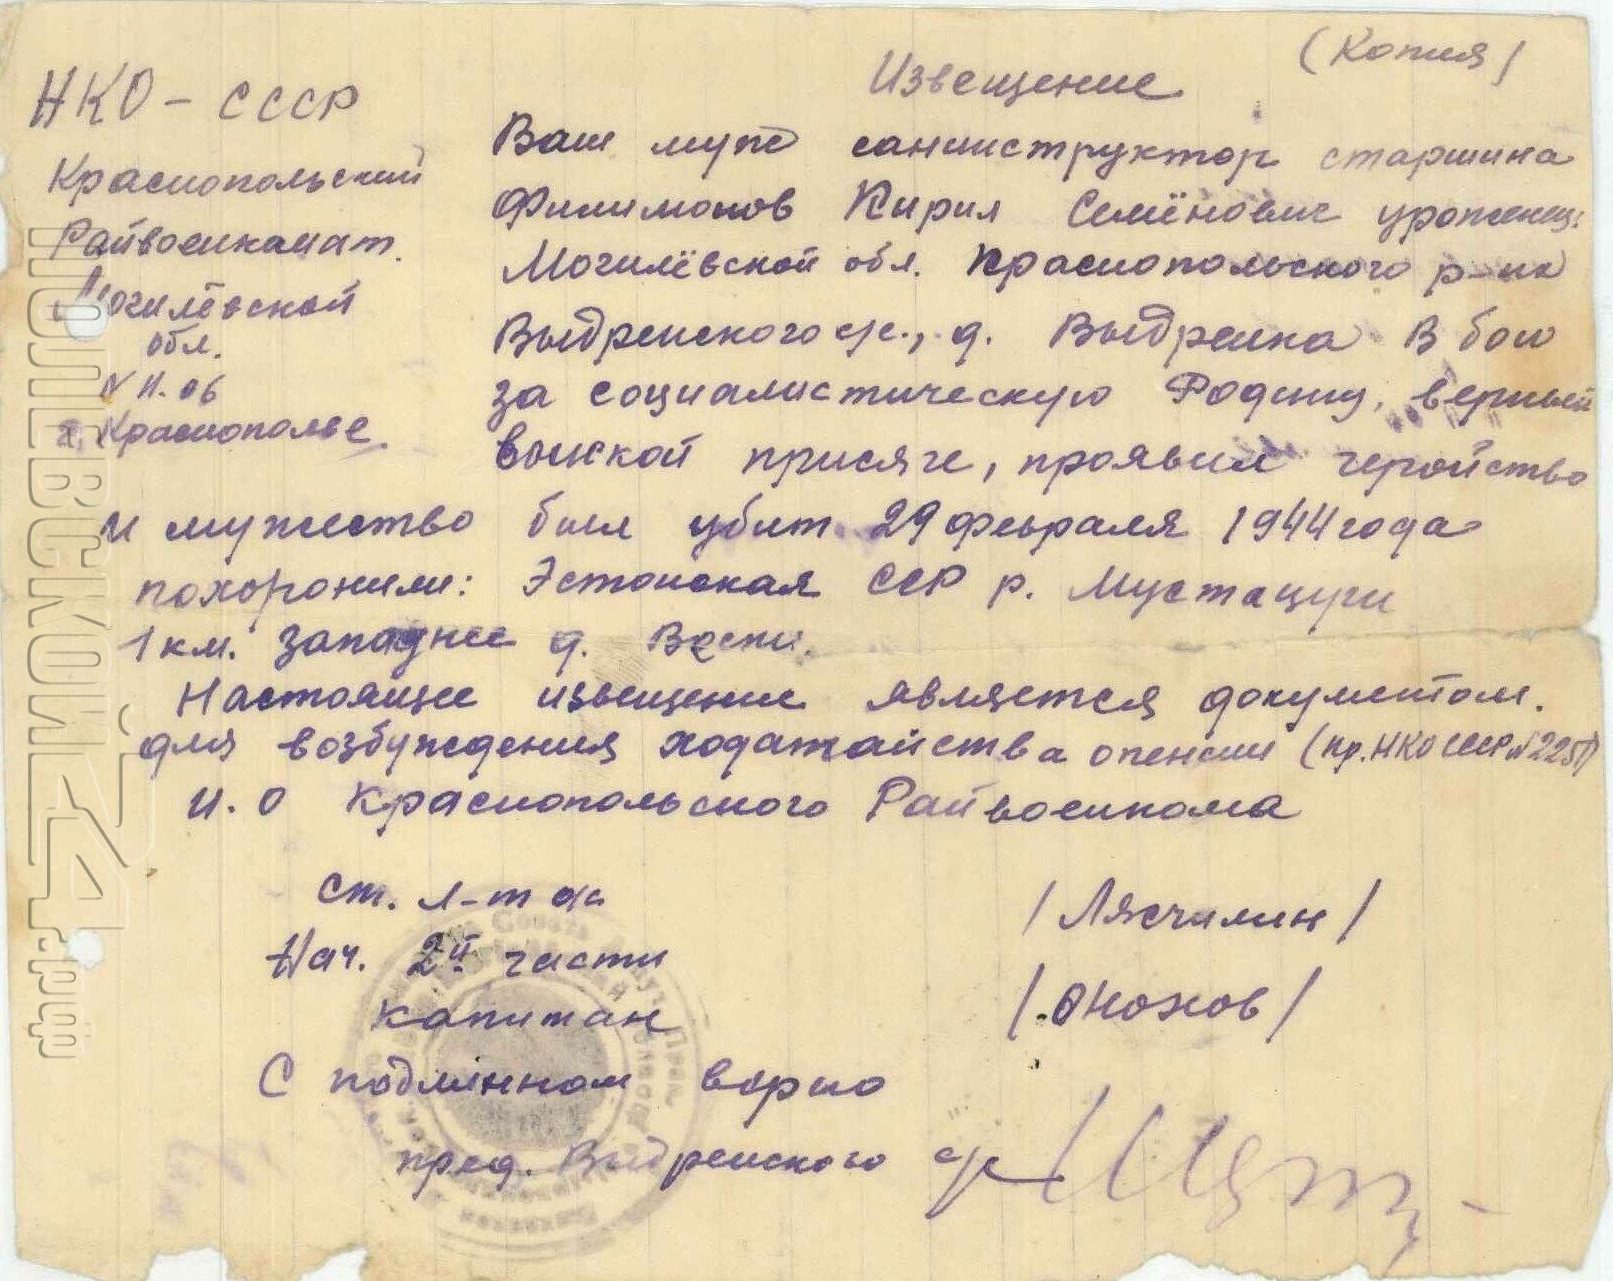 (Копия)
Извещение
НКО - СССР
Краснопольский
Райвоенкомат.
Могилёвской
обл.
№ 11.06
Краснополье
Ваш муж санинструктор старшина
Филимонов Кирил Семёнович уроженец:
Могилёвской обл. Краснопольского р-на
Выдренского с/с., д. Выдренка В бою
за социалистическую Родину, верный
воиской присяге, проявил геройство
и мужество был убит 29 февраля 1944 года
похоронили: Эстонская ССР р.
1 км. западнее д.
Настоящее извещение является документом.
для возбуждения ходатайства о пенсии (пр. НКО СССР №
И.О Краснопольского Райвоенкома
ст. л-т а/с
Нач. 2й части
капитан
/ Оножов /
С подлинном верно
пред. Выдренского с/с
ПОЛЕВСКОЙ24.рф